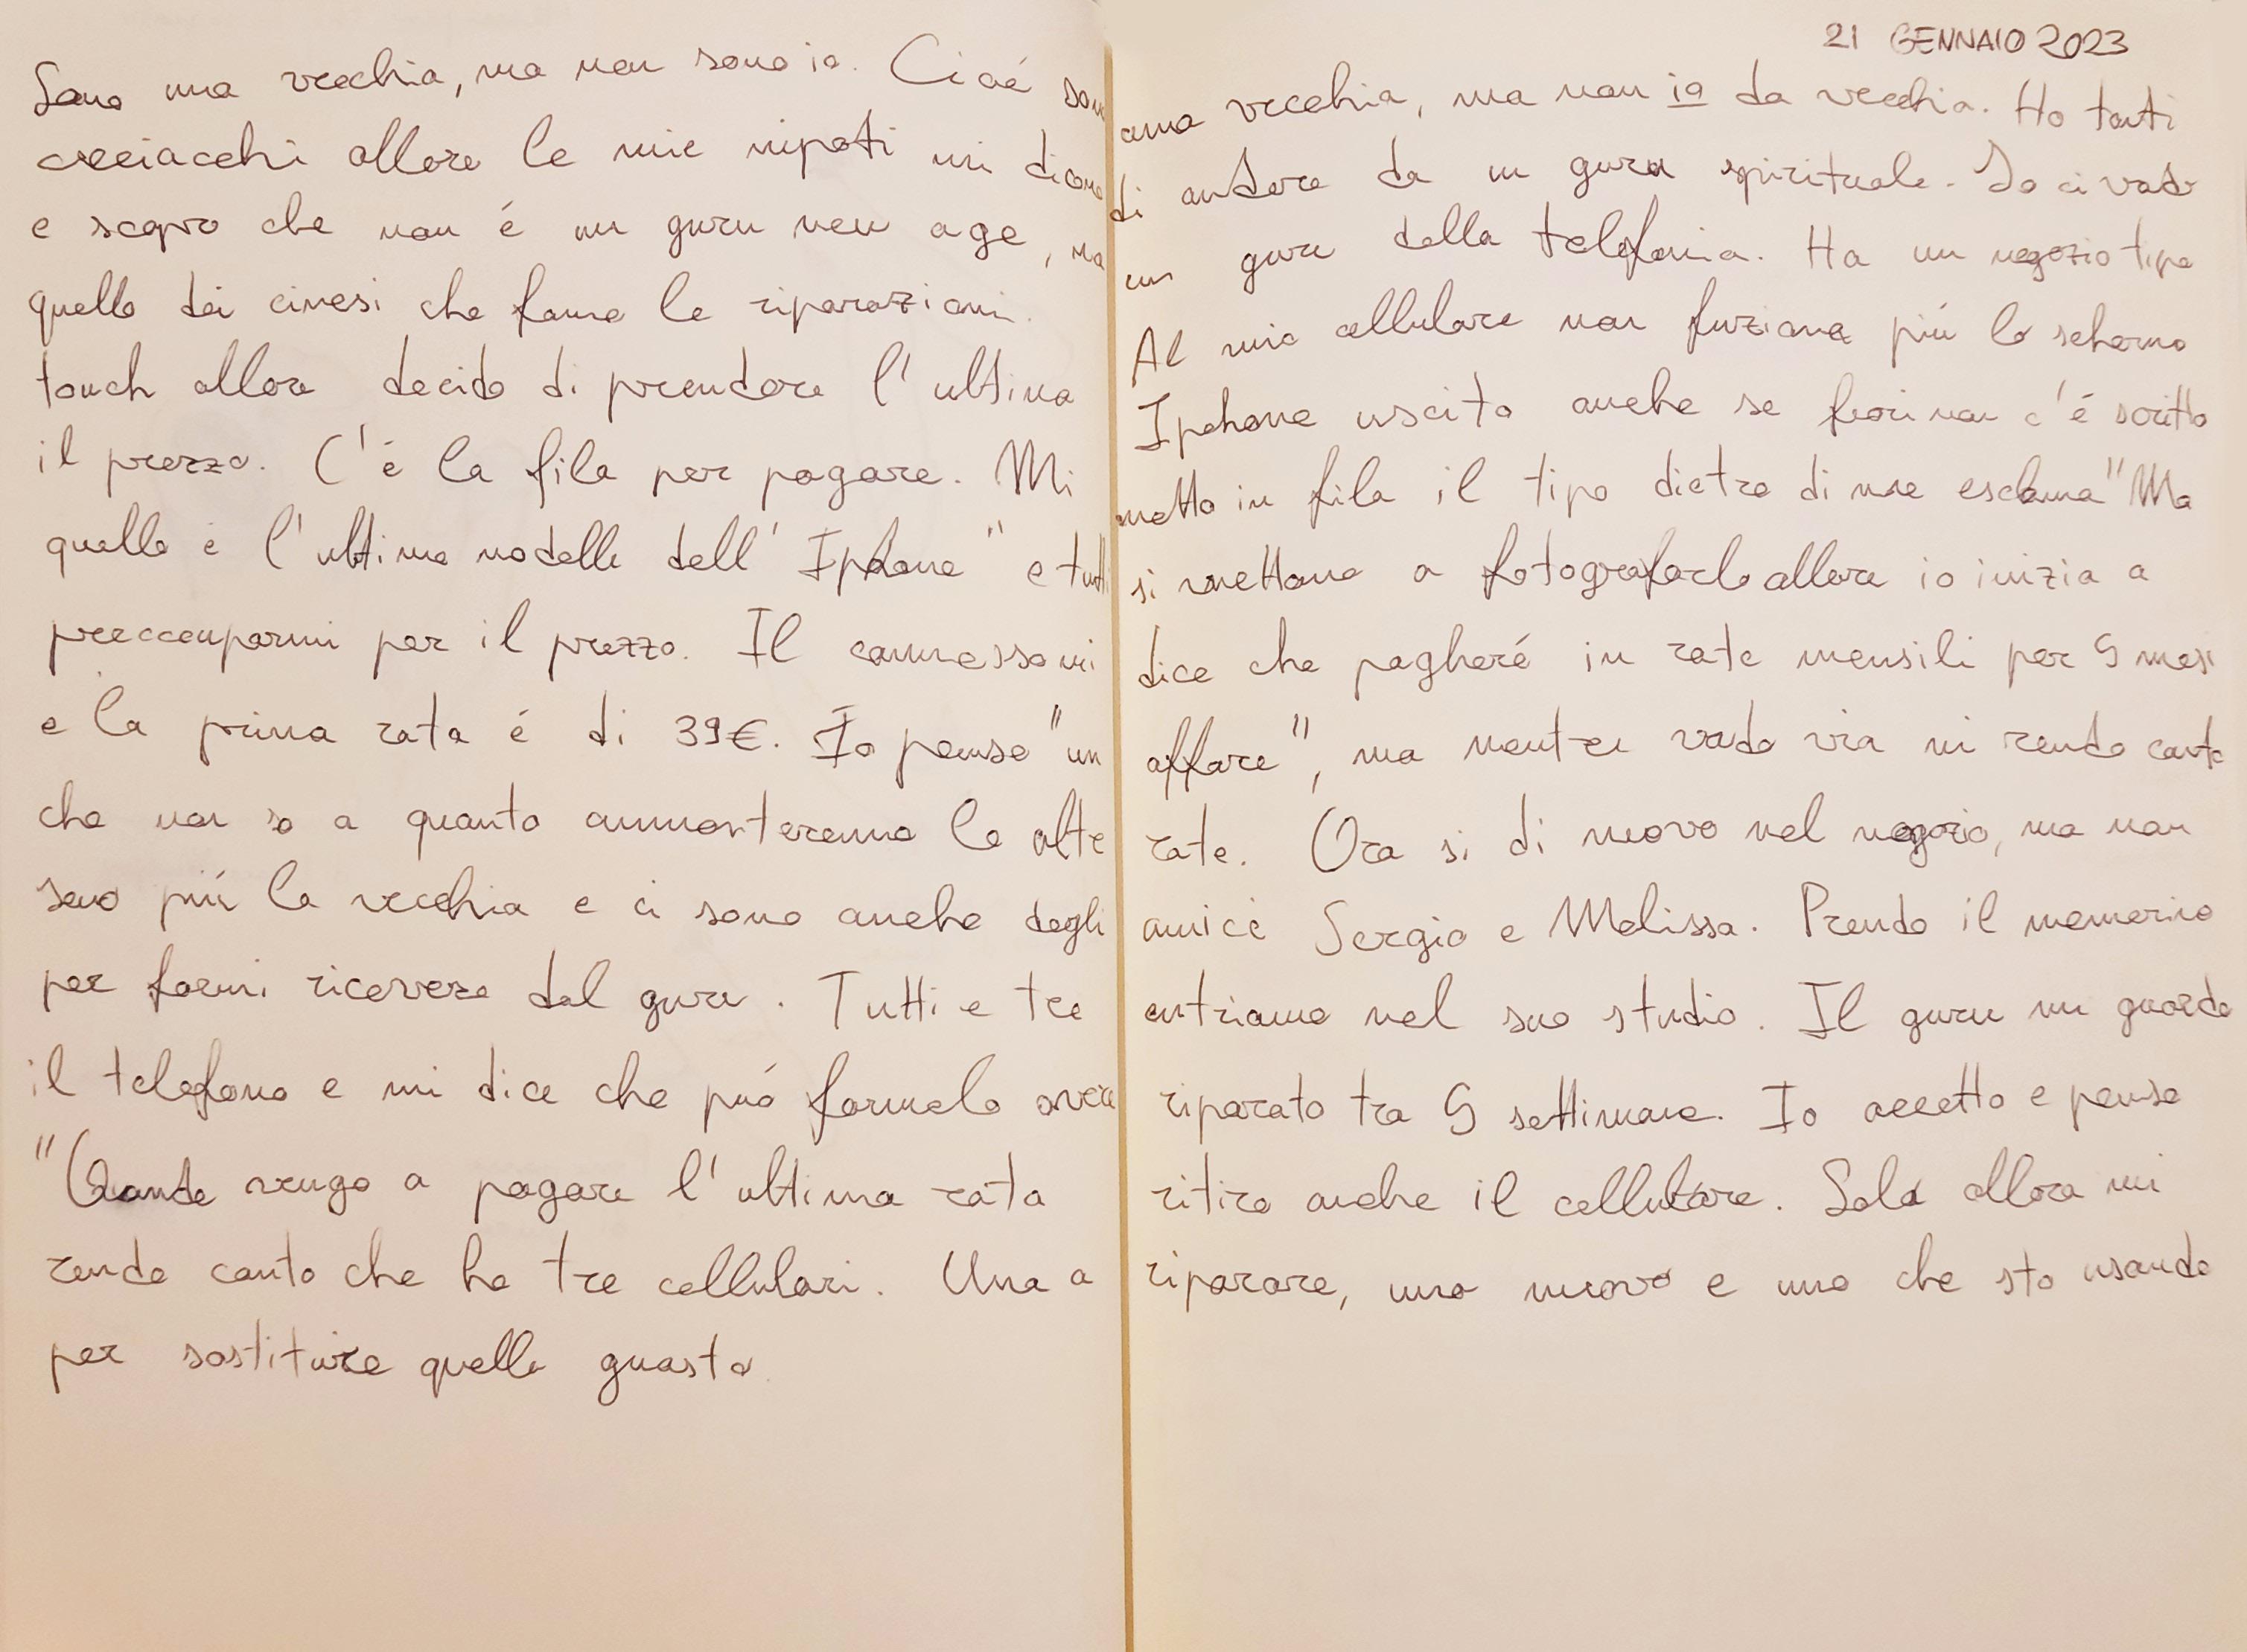 21 GENNAIO 2023
Sono una vecchia, ma non sono io. Cioé sono una vecchia, ma non io da vecchia. Ho tanti
acciacchi allora le mie nipoti mi dicono di andare da un guru spirituale. Io ci vado
e scopro che non é un guru new age, ma un guru della telefonia. Ha un negozio tipo
quello dei cinesi che fanno le riparazioni. Al mio cellulare non funziona più lo schermo
touch allora decido di prendere l'ultimo Iphone uscito anche se fuori non c'é scritto
il prezzo. C'é la fila per pagare. Mi metto in fila il tipo dietro di me esclama "Ma
quello é l'ultimo modello dell'Iphone" e tutti si mettono a fotografarlo allora io inizio a
preoccuparmi per il prezzo. Il commesso mi dice che pagheré in rate mensili per 5 mesi
e la prima rata é di 39€. Io penso "un affare", ma mentre vado via mi rendo conto
che non so a quanto ammonteranno le altre rate. Ora si di nuovo nel negozio, ma non
sono più la vecchia e ci sono anche degli amici Sergio e Melissa. Prendo il numerino
per farmi ricevere dal guru. Tutti e tre entriamo nel suo studio. Il guru mi guarda
il telefono e mi dice che può farmelo avere riparato tra 5 settimane. Io accetto e penso
"Quando vengo a pagare l'ultima rata ritiro anche il cellulare. Solo allora mi
rendo conto che ho tre cellulari. Uno a riparare, uno nuovo e uno che sto usando
per sostituire quello guasto